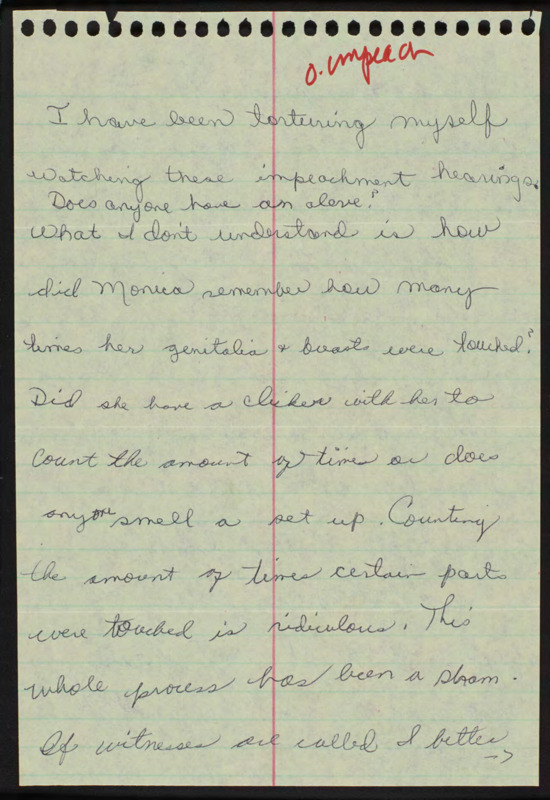 O. impeach
I have been torturing myself
watching these impeachment hearings.
Does anyone have an aleve?
What I don't understand is how
did Monica remember how many
times her genitalia & breasts were touched?
Did she have a clicker with her to
count the amount of times or does
anyone smell a set up. Counting
the amount of times certain parts
were touched is ridiculous. This
whole process has been a sham.
If witnesses are called I better
→